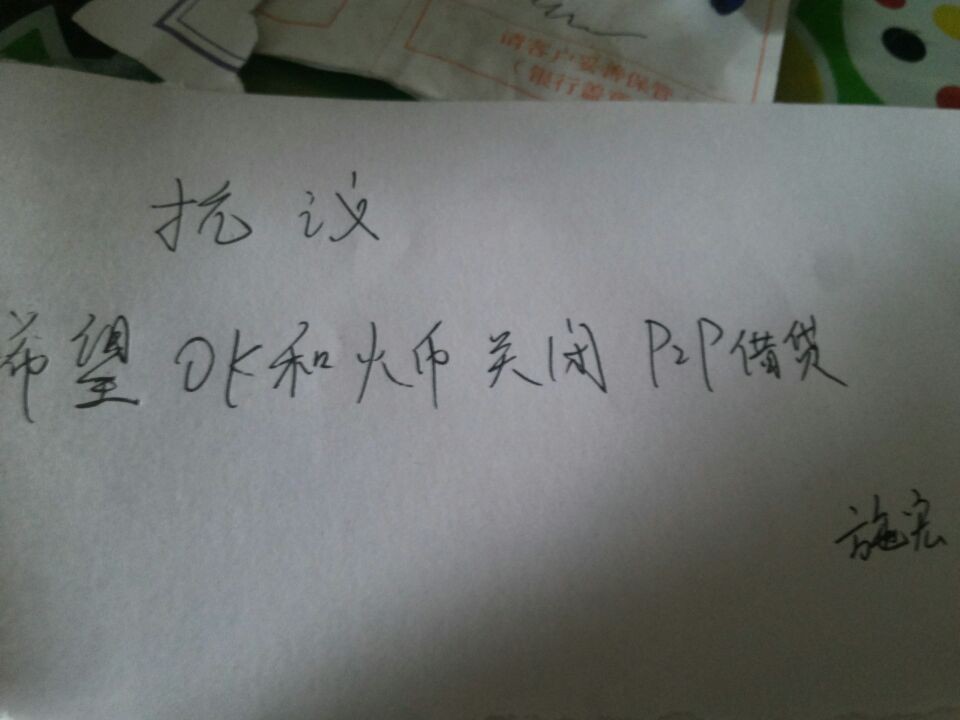 请客户妥善保管
(银行盖章
抗议
希望OK和火币关闭P2P借贷
施宏